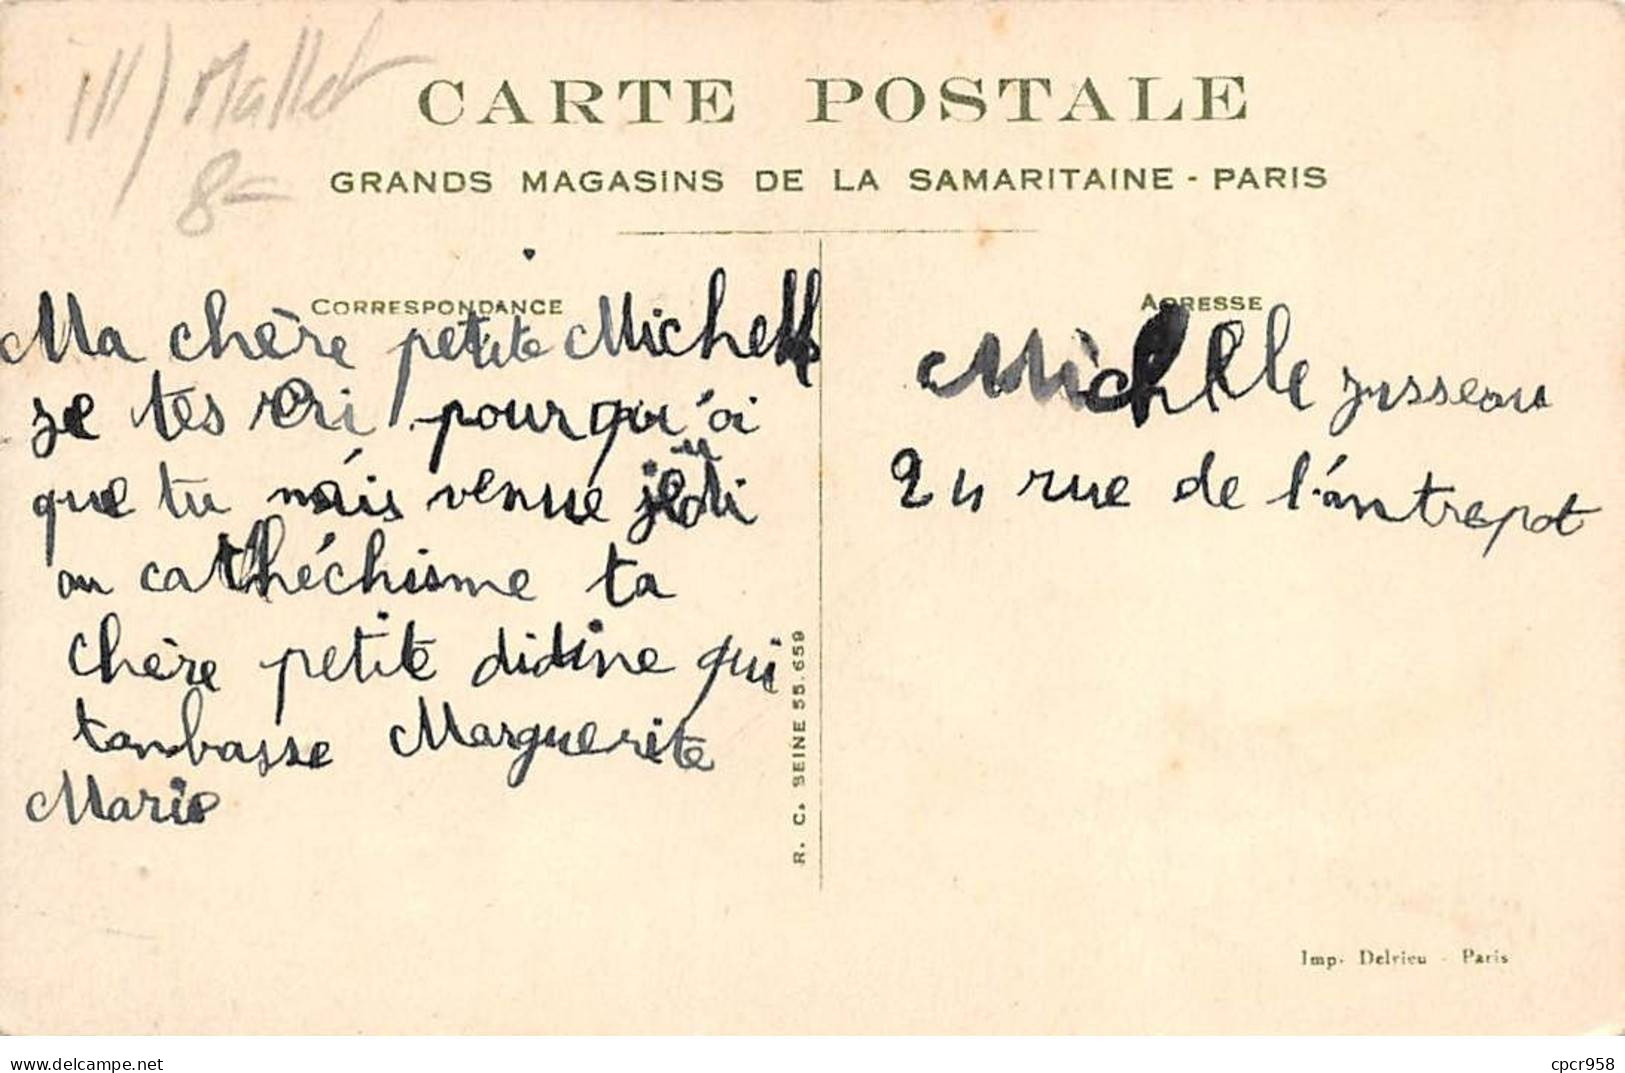 ill) Mallet
8=
CARTE POSTALE
GRANDS MAGASINS DE LA SAMARITAINE - PARIS
CORRESPONDANCE
Ma chère petite Michelle
je tes écri pourqu'oi
que tu náis venue jeudi
au cathéchisme ta
chère petite didine qui
tambasse Marguerite
Marie
R. C. SEINE 55.659
ADRESSE
Michelle jusseau
24 rue de l'antrepot
Imp. Delrieu - Paris
Delcampe.net
cpcr958